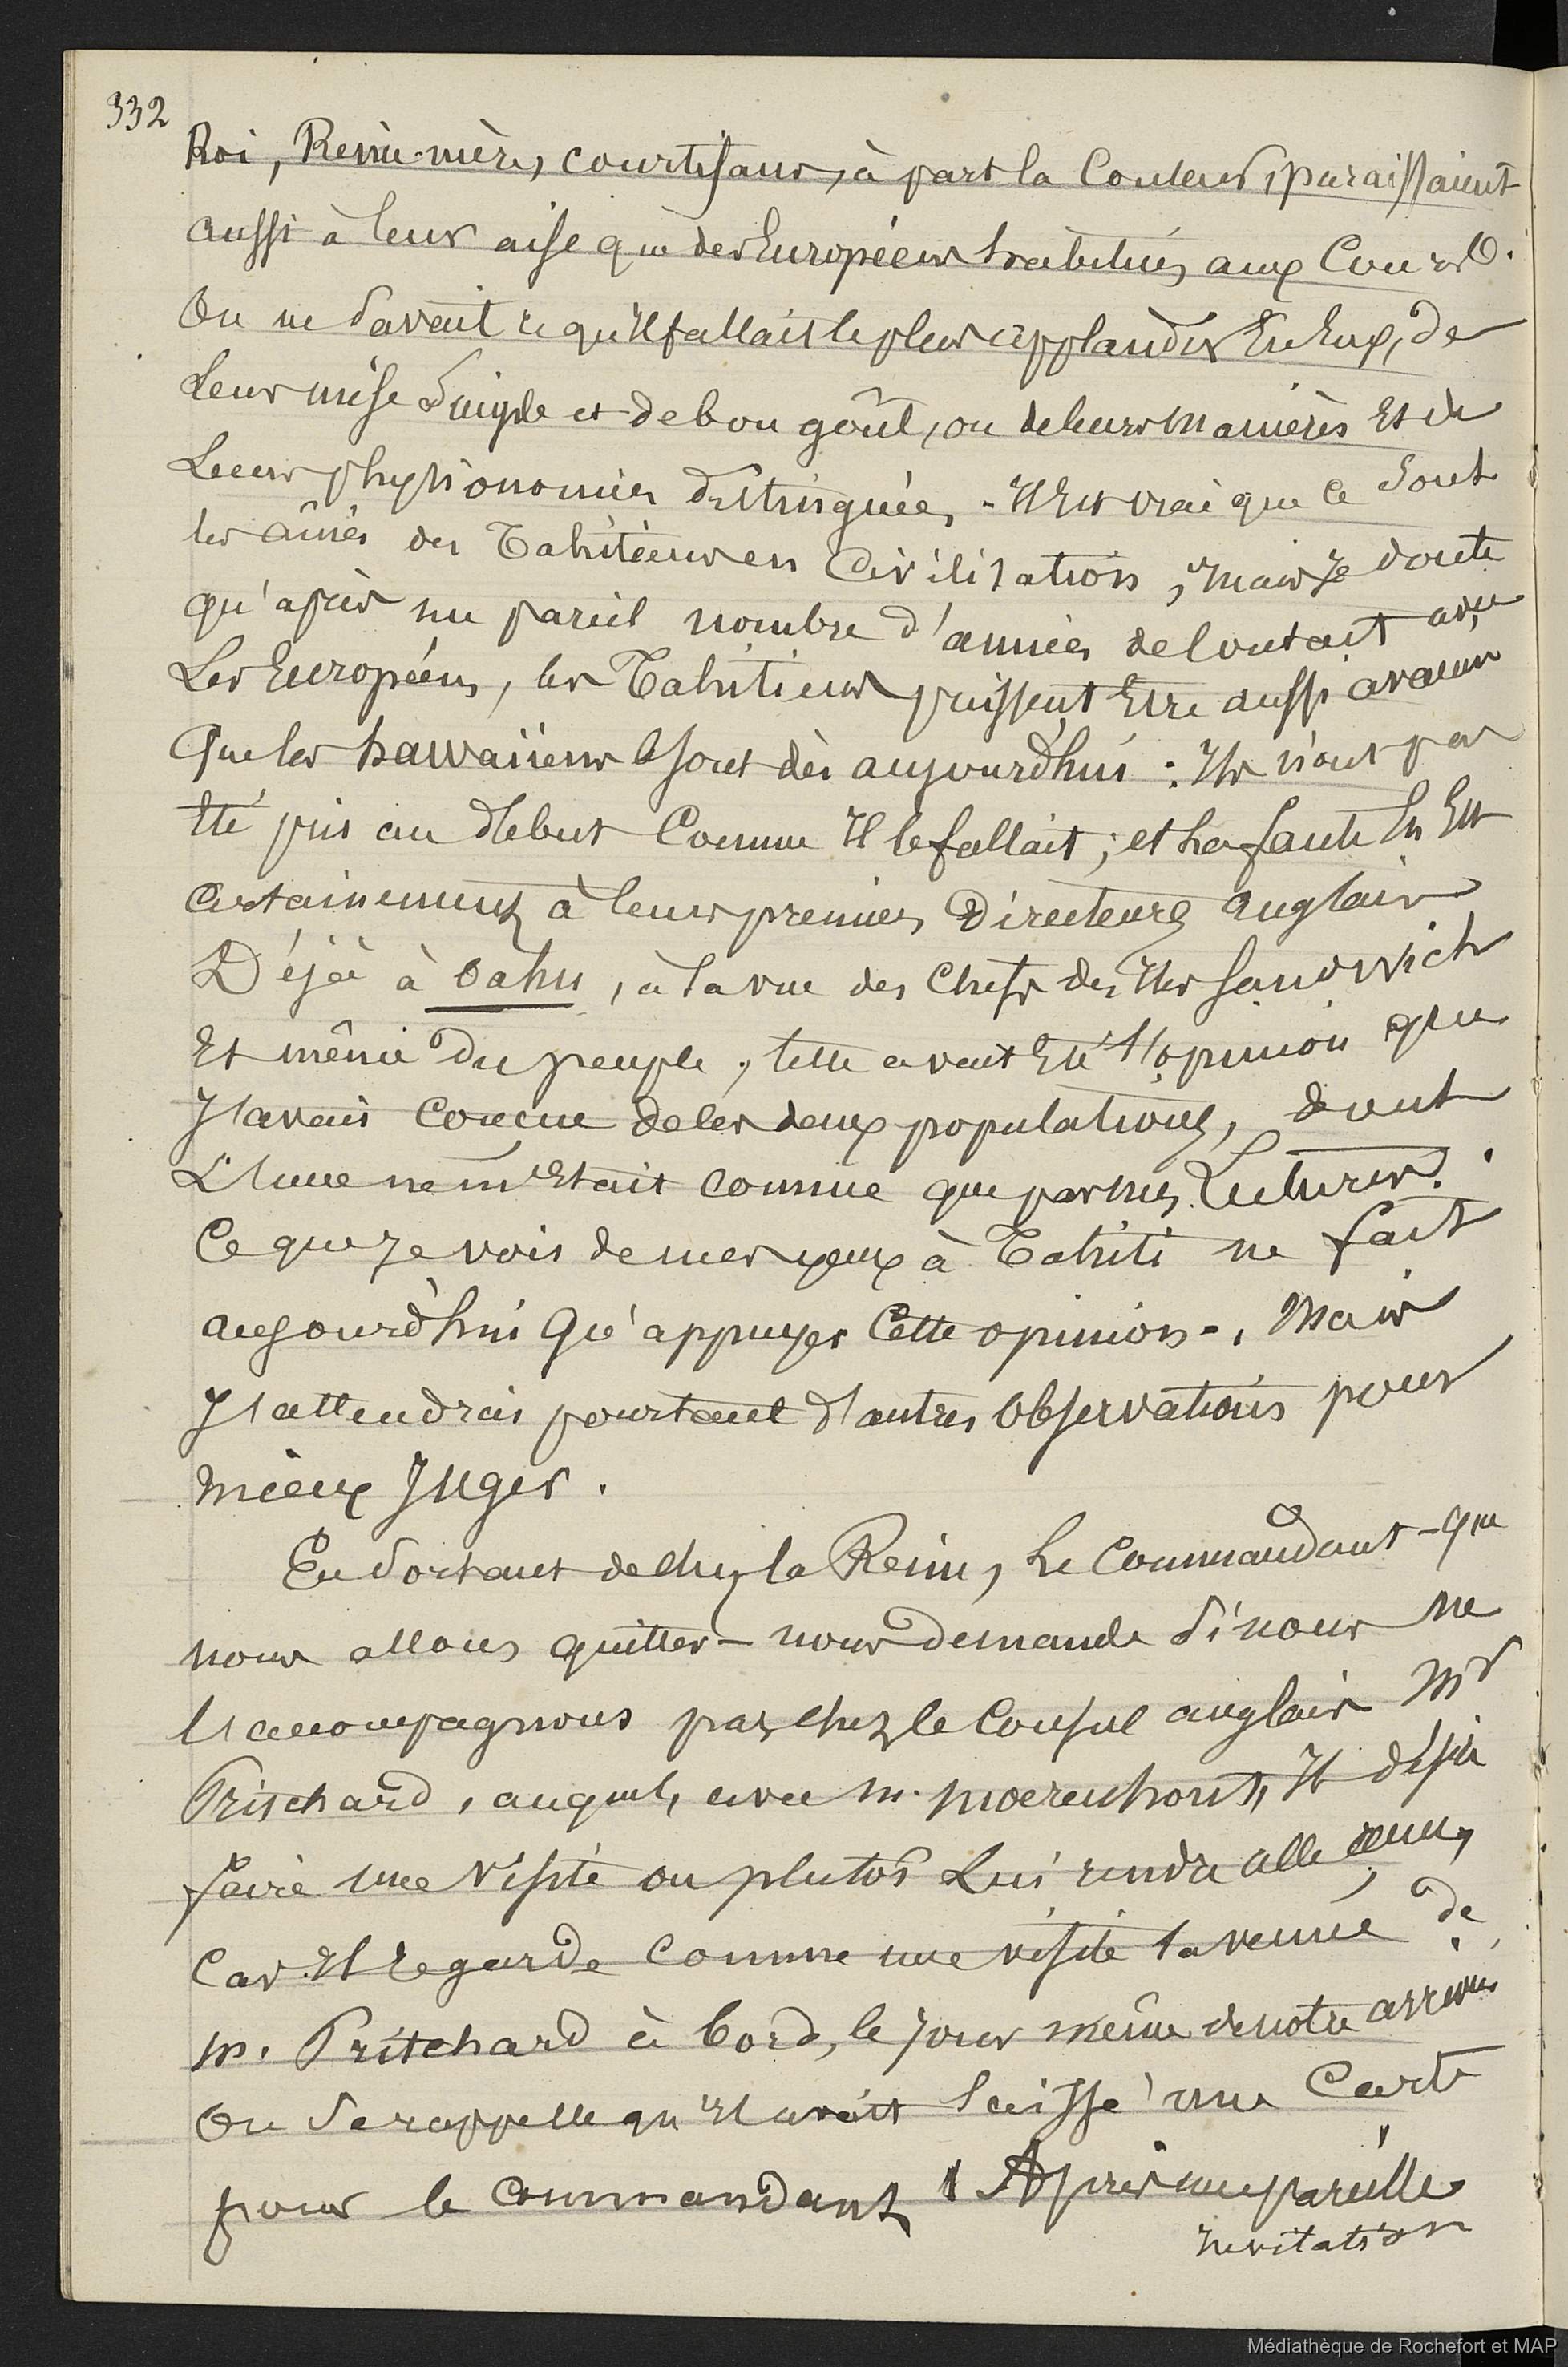 332
Roi, Reine-mère, courtisans, à part la Couleur, paraissaient
aussi à leur aise que des Européens habitués aux Cours.
On ne savait ce qu'il fallait le plus applaudir En Eux, de
Leur mise Simple et de bon goût, ou de leurs manières Et de
Leurs physionomies distinguées, - Il Est vrai que ce Sont
les aînés des Tahitiens en Civilisation, mais Je doute
qu'après un pareil nombre d'années de Contact avec
Les Européens, les Tahitiens puissent Etre aussi avancés
Que les hawaiiens le sont dès aujourd'hui : Ils n'ont pas
Eté pris au début Comme Il le fallait ; et la faute En Est
Certainement à leurs premiers Directeurs anglais
Déjà à Oahu, à la vue des Chefs des Iles Sandwich
Et même du peuple, telle avait Eté l'opinion que
J'avais Conçue de les deux populations, dont
L'une ne m'Etait connue que par mes Lectures.
Ce que Je vois de mes yeux à Tahiti ne fait
aujourd'hui Qu'appuyer Cette opinion -, Mais
J'attendrai pourtant d'autres Observations pour
mieux Juger.
En Sortant de chez la Reine, Le Commandant - que
nous allons quitter - nous demande Si nous ne
l'accompagnons pas chez le Consul anglais Mr
Pritschard, auquel, avec M. Moerenhout, Il désire
faire une Visite ou plutôt Lui rendre
Car Il regarde Comme une visite la venue de
M. Pritchard à bord, le Jour même de notre arrivée
On Se rappelle qu'Il avait laissé une Carte
pour le Commandant Après une pareille
Invitation
Médiathèque de Rochefort et MAP